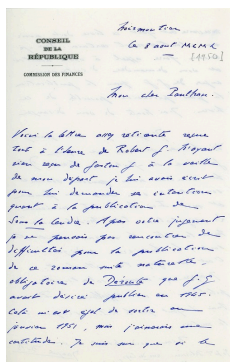 CONSEIL
DE LA
RÉPUBLIQUE
COMMISSION DES FINANCES
Noirmoutier
le 8 aout MCML
[1950]
Mon cher Paulhan.
Voici la lettre assez réticente reçue
tout à l'heure de Robert G.
rien reçu de Gaston G à la veille
de mon départ je lui avais écrit
pour lui demander ses intentions
quant à la publication de
Sous la cendre. Après votre jugement
je ne pensais pas rencontrer de
difficultés pour la publication
de ce roman suite
obligatoire de que G. G
avait désiré publier en 1945.
Cela m'est égal de sortir en
janvier 1951, mais j'aimerais une
certitude. Je sais que si le